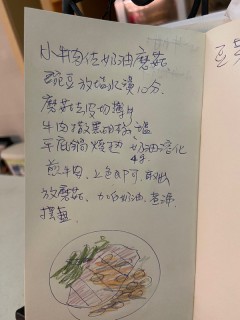 小牛肉佐奶油蘑菇
豌豆放塩水燙10分
蘑菇去皮切薄片
牛肉撒黑胡椒 塩
平底鍋燒熱 奶油溶化
煎牛肉、上色即可 取出
放蘑菇、加奶油、煮滾
擺盤.
豆